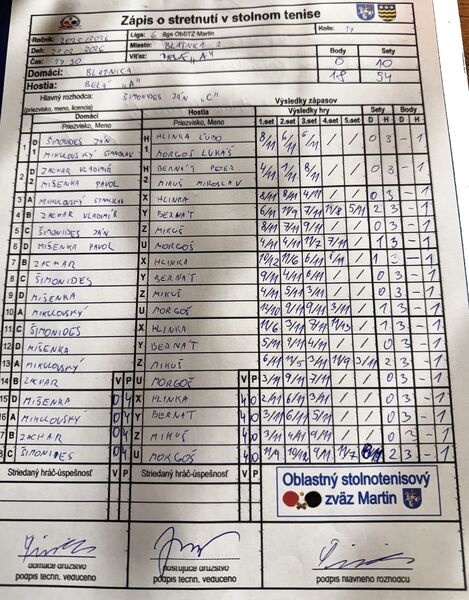 Zápis o stretnutí v stolnom tenise
Ročník: 2025/2026 Liga: 6. liga ObSTZ Martin Kolo: 17
Deň: 21.02.2026 Miesto: BLATNICA 2
Čas: 17.30 Víťaz: BELÁ "A" Body Sety
Domáci: BLATNICA 0 10
Hostia: BELÁ "A" 18 54
Hlavný rozhodca: ŠIMONIDES JÁN "C"
(priezvisko, meno, licencia)
Výsledky zápasov
Domáci Hostia Výsledky hry Sety Body
Priezvisko, Meno Priezvisko, Meno 1.set 2.set 3.set 4.set 5.set D H D H
1 D1 ŠIMONIDES JÁN H1 HLINKA ĽUBO 8/11 6/11 6/11 / / 0 3 - 1
MIKULOVSKÝ STANISLAV MORGOŠ LUKÁŠ
2 D2 ZACHAR VLADIMÍR H2 BERNÁT PETER 4/11 1/11 8/11 / / 0 3 - 1
MIŠENKA PAVOL MIKUŠ MIROSLAV
3 A MIKULOVSKÝ STANISLAV X HLINKA 8/11 8/11 4/11 / / 0 3 - 1
4 B ZACHAR VLADIMÍR Y BERNÁT 6/11 11/9 7/11 11/8 5/11 2 3 - 1
5 C ŠIMONIDES JÁN Z MIKUŠ 8/11 7/11 9/11 / / 0 3 - 1
6 D MIŠENKA PAVOL U MORGOŠ 4/11 4/11 11/7 7/11 / 1 3 - 1
7 B ZACHAR X HLINKA 10/12 11/6 6/11 6/11 / 1 3 - 1
8 C ŠIMONIDES Y BERNÁT 9/11 4/11 6/11 / / 0 3 - 1
9 D MIŠENKA Z MIKUŠ 4/11 5/11 3/11 / / 0 3 - 1
10 A MIKULOVSKÝ U MORGOŠ 9/11 9/11 3/11 / 1 3 - 1
11 C ŠIMONIDES X HLINKA 11/6 3/11 7/11 / 1 3 - 1
12 D MIŠENKA Y BERNÁT 5/11 9/11 4/11 / / 0 3 - 1
13 A MIKULOVSKÝ Z MIKUŠ 6/11 11/5 3/11 11/9 3/11 2 3 - 1
14 B ZACHAR V P U MORGOŠ V P 3/11 9/11 7/11 / / 0 3 - 1
15 D MIŠENKA 0 4 X HLINKA 4 0 2/11 6/11 3/11 / / 0 3 - 1
16 A MIKULOVSKÝ 0 4 Y BERNÁT 4 0 3/11 6/11 5/11 / / 0 3 - 1
17 B ZACHAR 0 4 Z MIKUŠ 4 0 3/11 4/11 9/11 / / 0 3 - 1
18 C ŠIMONIDES 0 4 U MORGOŠ 4 0 11/9 10/12 4/11 11/7 8/11 2 3 - 1
Striedaný hráč-úspešnosť V P Striedaný hráč-úspešnosť V P
Oblastný stolnotenisový
zväz Martin
domáce družstvo hosťujúce družstvo
podpis techn. vedúceho podpis techn. vedúceho podpis hlavného rozhodcu